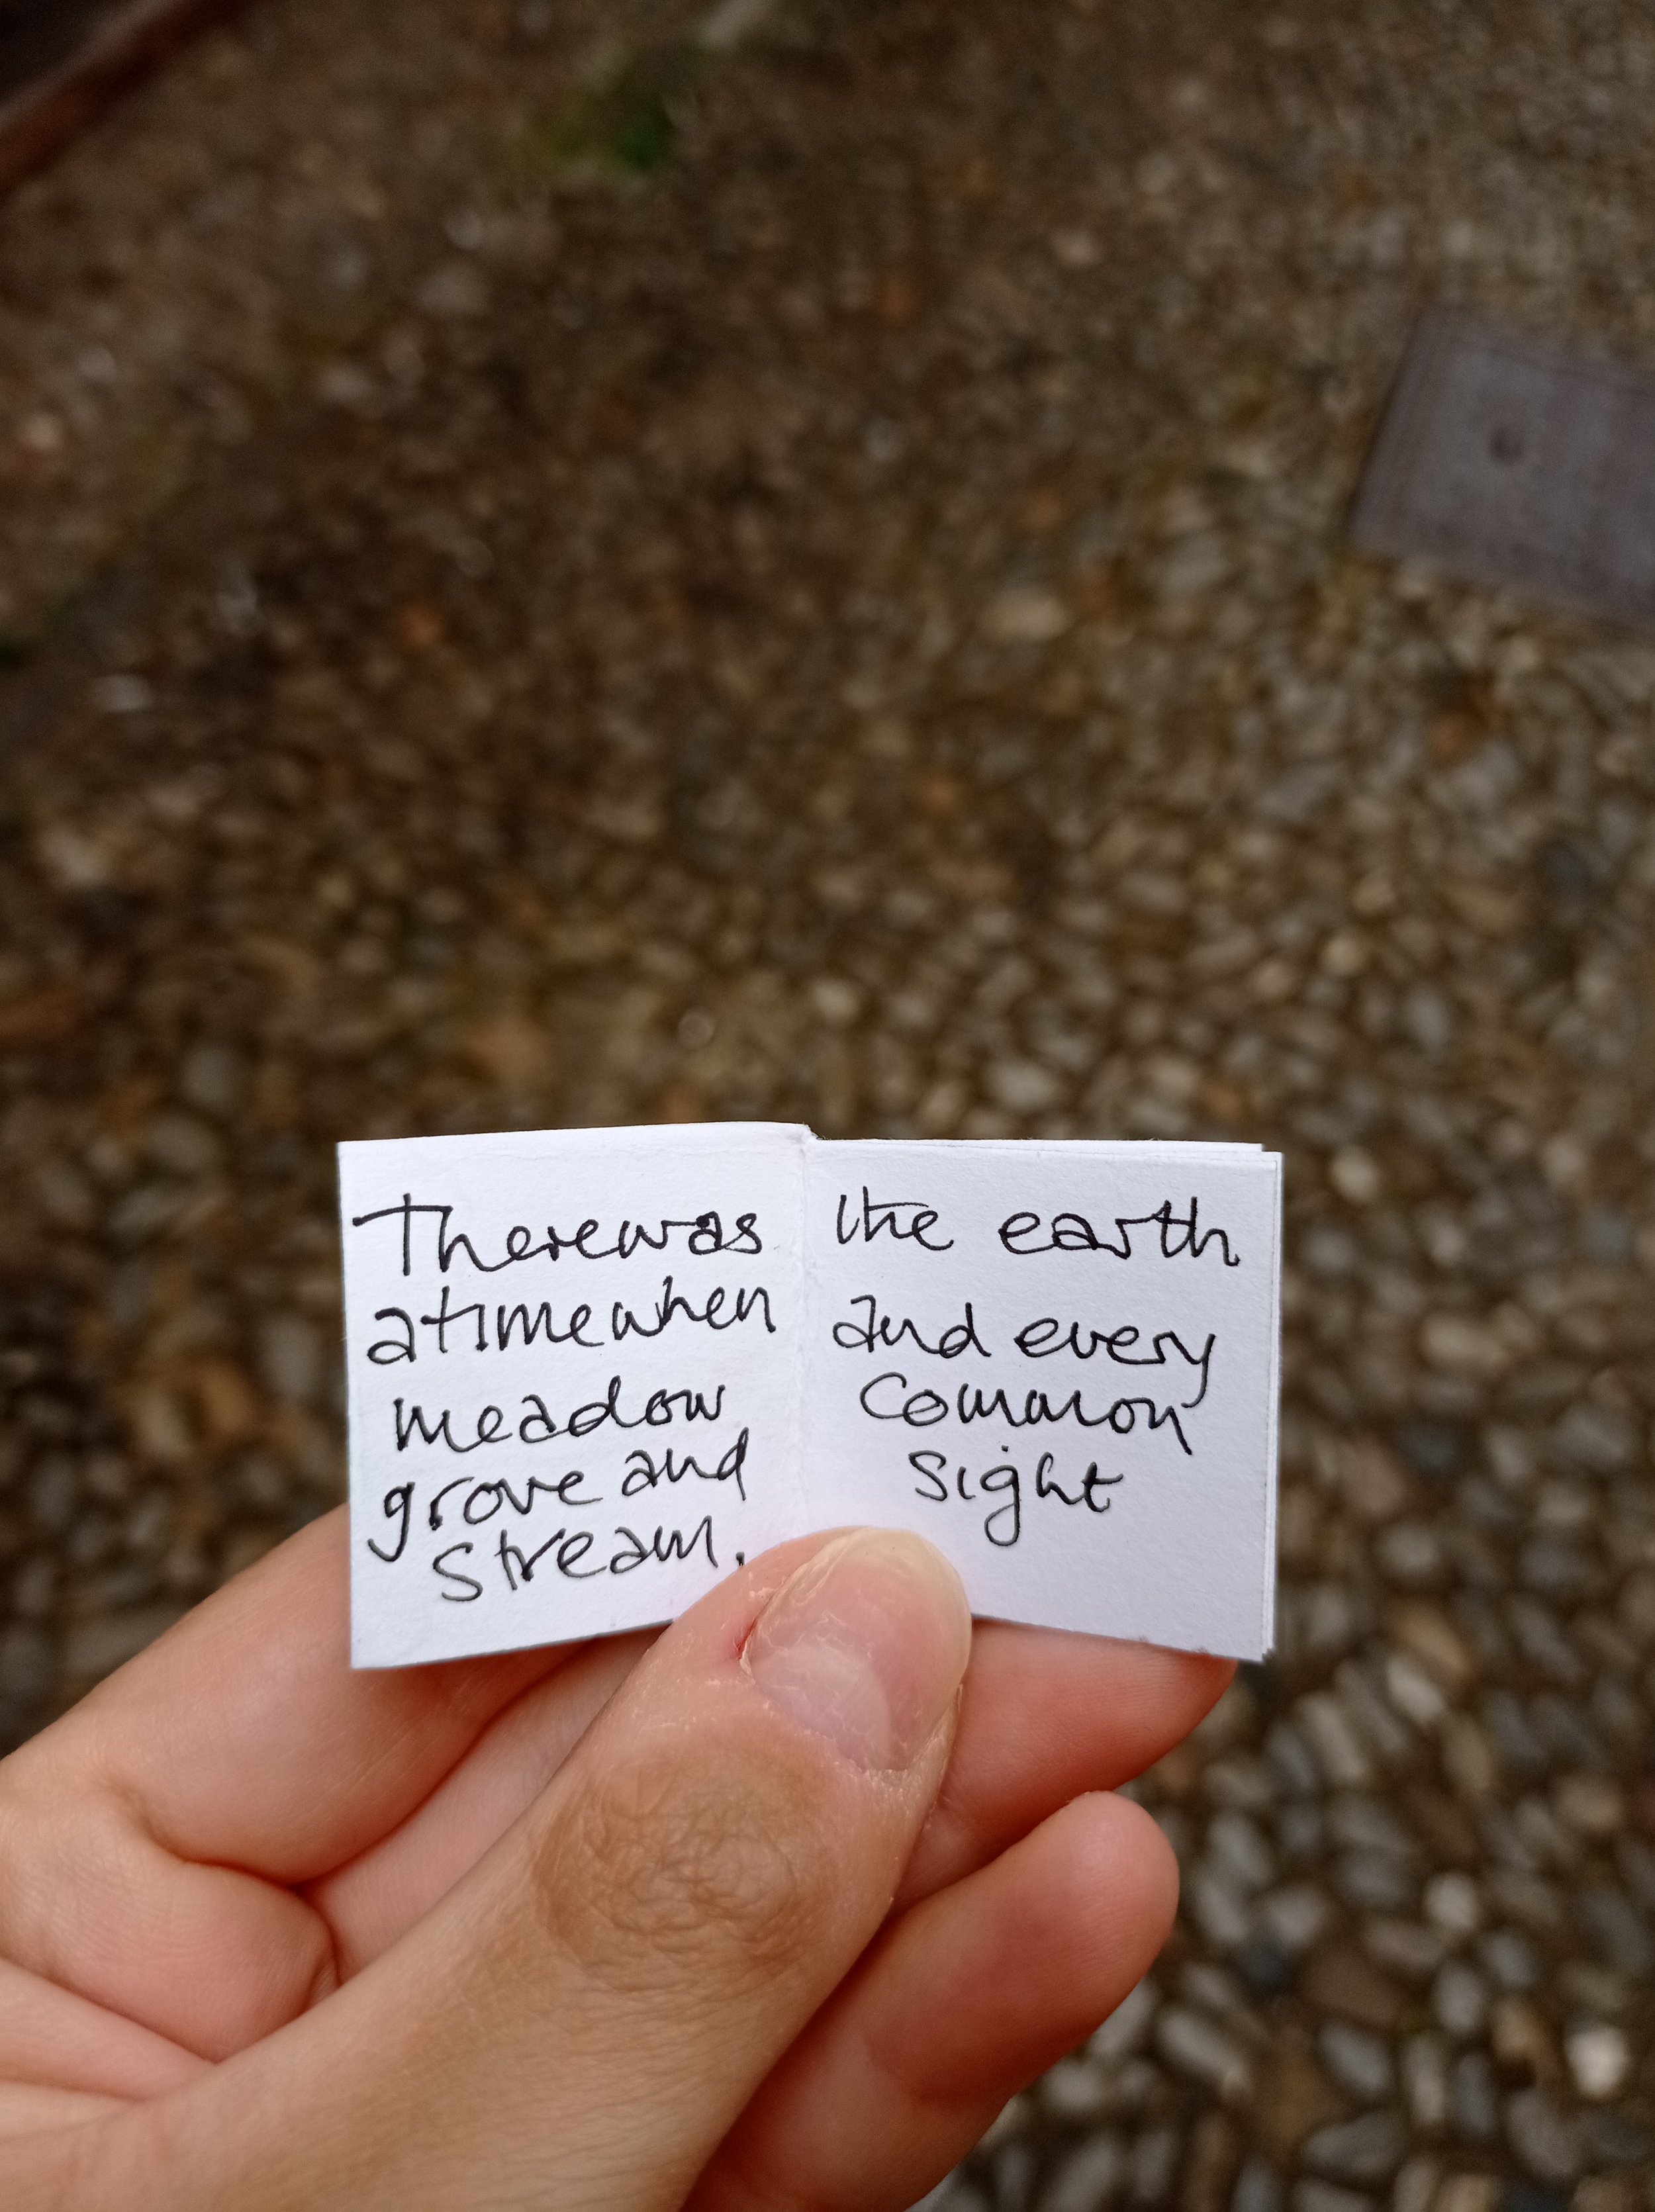 There was
a time when
meadow
grove and
stream.
the earth
and every
common
sight